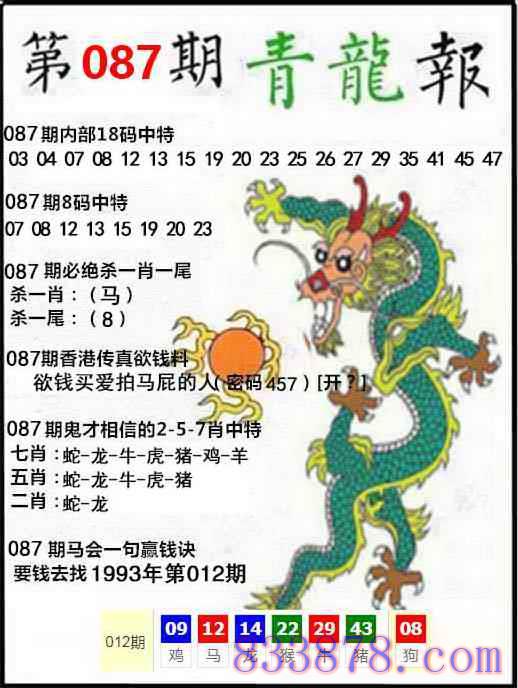 第087期青龍報
087期内部18码中特
03 04 07 08 12 13 15 19 20 23 25 26 27 29 35 41 45 47
087期8码中特
07 08 12 13 15 19 20 23
087期必绝杀一肖一尾
杀一肖：（马）
杀一尾：（8）
087期香港传真欲钱料
欲钱买爱拍马屁的人（密码457）[开？]
087期鬼才相信的2-5-7肖中特
七肖：蛇-龙-牛-虎-猪-鸡-羊
五肖：蛇-龙-牛-虎-猪
二肖：蛇-龙
087期马会一句赢钱诀
要钱去找1993年第012期
012期 09 12 14 22 29 43 08
鸡 马 龙 猴 牛 猪 狗
833878.com